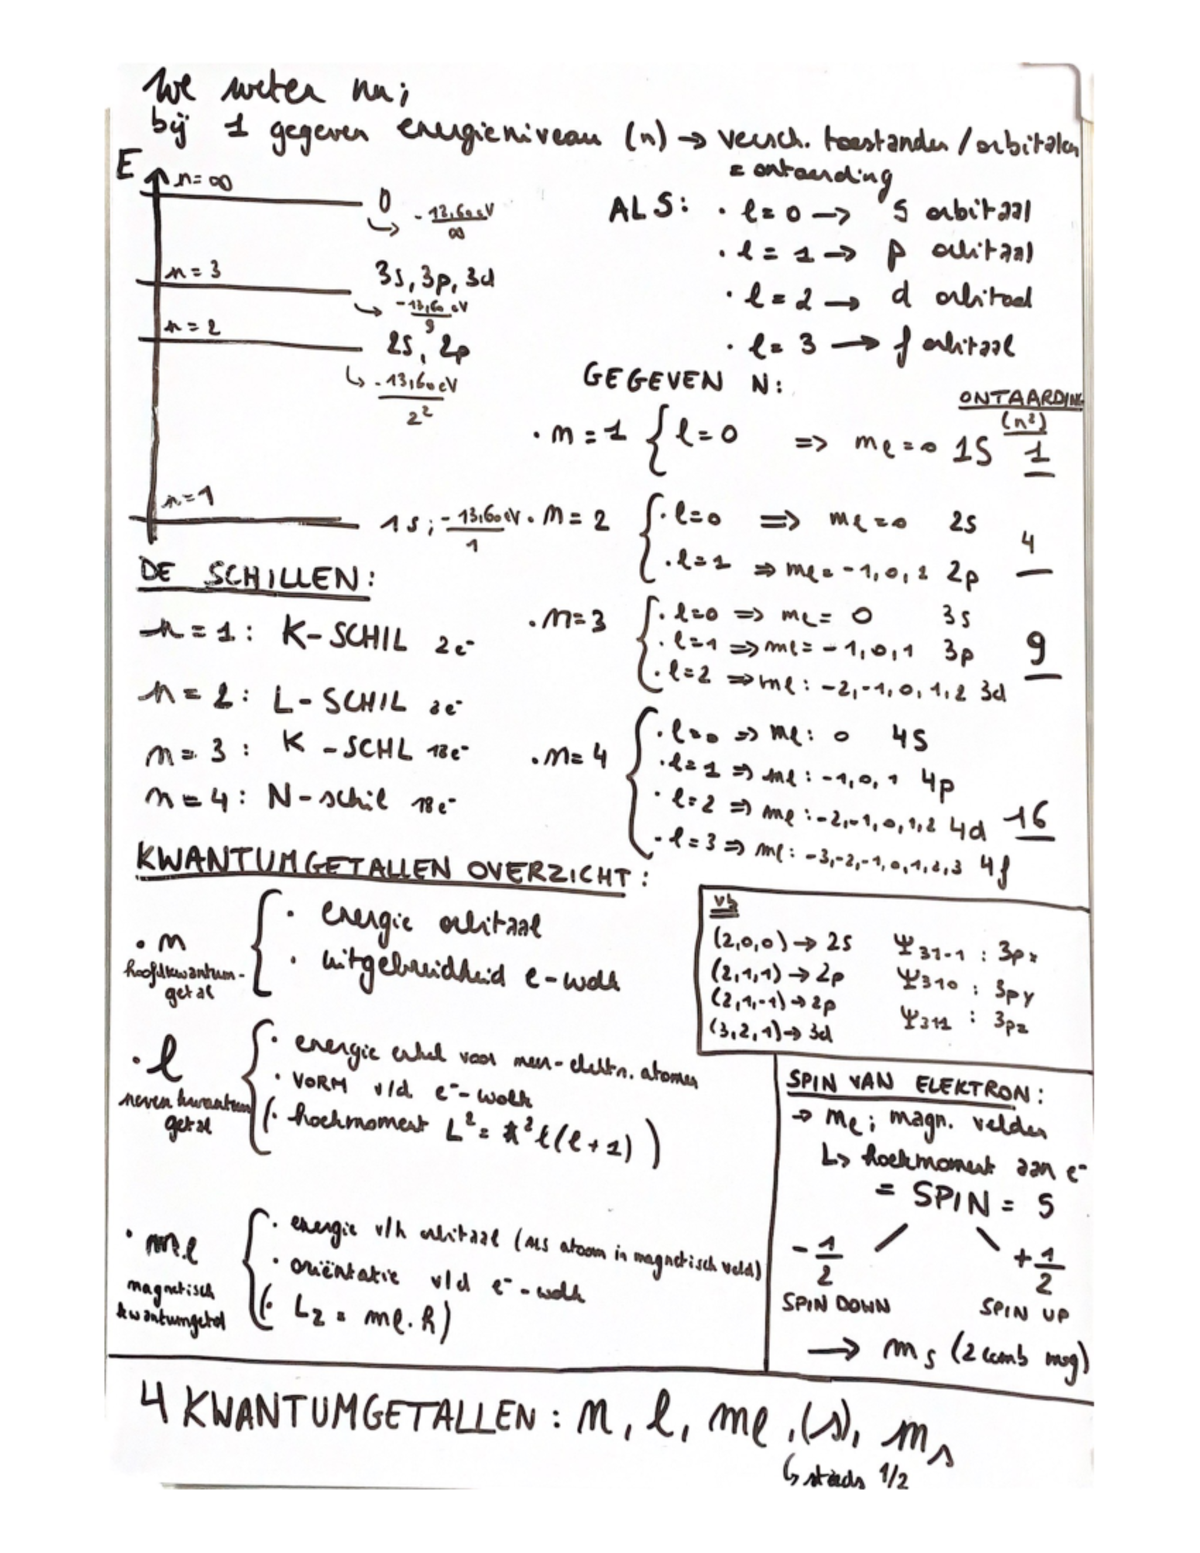 We weten nu;
bij 1 gegeven energieniveau (n) → versch. toestanden / orbitalen
= ontaarding
E
n=∞
0
↳ -13,60 eV / ∞
n=3
3s, 3p, 3d
↳ -13,60 eV / 9
n=2
2s, 2p
↳ -13,60 eV / 2²
n=1
1s; -13,60 eV / 1
ALS: · l=0 → s orbitaal
· l=1 → p orbitaal
· l=2 → d orbitaal
· l=3 → f orbitaal
GEGEVEN N:
ONTAARDING
(n²)
· n=1 { l=0 => ml=0 1S 1
· n=2 { · l=0 => ml=0 2S
· l=1 => ml=-1,0,1 2p
4
· n=3 { · l=0 => ml= 0 3s
· l=1 => ml=-1,0,1 3p
· l=2 => ml: -2,-1,0,1,2 3d
9
· n=4 { · l=0 => ml: 0 4S
· l=1 => ml: -1,0,1 4p
· l=2 => ml: -2,-1,0,1,2 4d
· l=3 => ml: -3,-2,-1,0,1,2,3 4f
16
DE SCHILLEN:
n=1: K-SCHIL 2e⁻
n=2: L-SCHIL 8e⁻
n=3: K-SCHL 18e⁻
n=4: N-schil 18e⁻
KWANTUMGETALLEN OVERZICHT:
· n
hoofdkwantum-
getal
· energie orbitaal
· uitgebreidheid e-wolk
· l
nevenkwantum
getal
· energie enkel voor meer-elektr. atomen
· VORM v/d e⁻-wolk
(· hoekmoment L²=ħ²l(l+1))
· ml
magnetisch
kwantumgetal
· energie v/h orbitaal (ALS atoom in magnetisch veld)
· oriëntatie v/d e⁻-wolk
(· Lz = ml.ħ)
vb
(2,0,0) → 2s
(2,1,1) → 2p
(2,1,-1) → 2p
(3,2,1) → 3d
Ψ31-1 : 3px
Ψ310 : 3py
Ψ311 : 3pz
SPIN VAN ELEKTRON:
→ ml; magn. velden
↳ hoekmoment aan e⁻
= SPIN = S
-1/2
+1/2
SPIN DOWN
SPIN UP
→ ms (2 comb mog)
4 KWANTUMGETALLEN: n, l, ml, (s), ms
↳ steeds 1/2